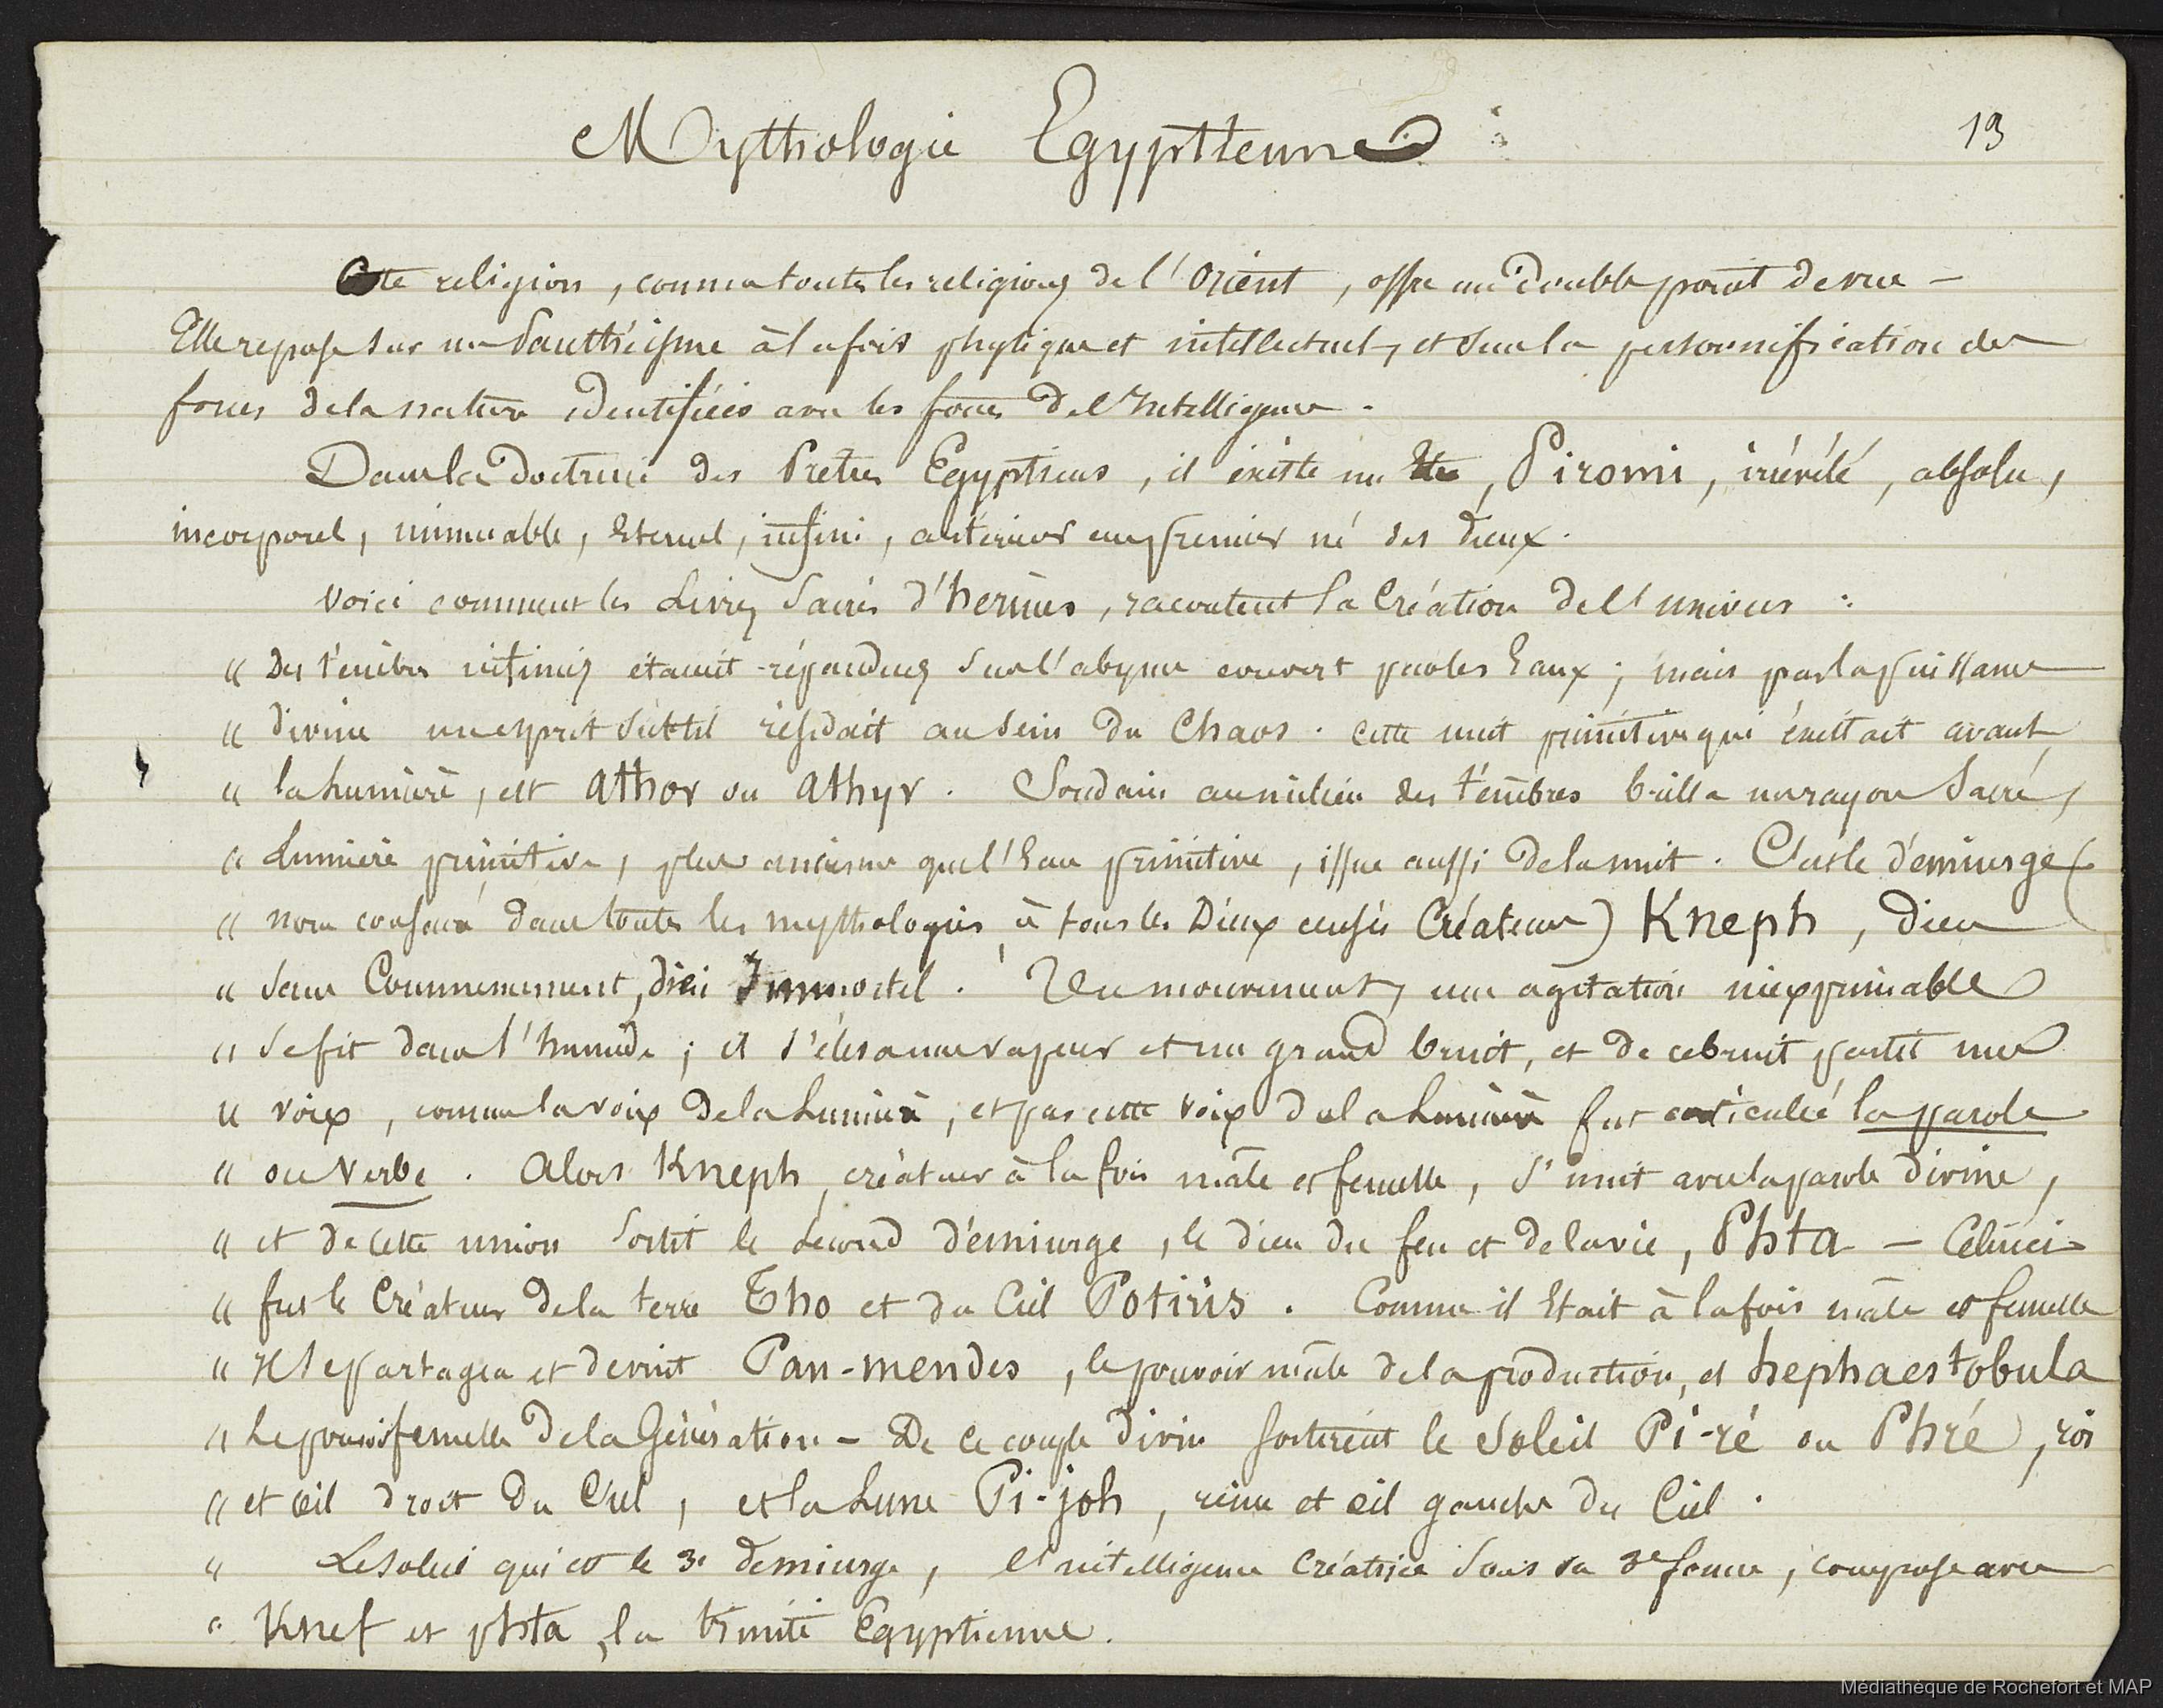 Mythologie Egyptienne
13
Cette religion, comme toutes les religions de l'Orient, offre un double point de vue —
Elle repose sur un Panthéisme à la fois physique et intellectuel, et sur la personnification des
forces de la nature identifiées avec les forces de l'Intelligence.
Dans la doctrine des Prêtres Egyptiens, il existe un Etre, Piromi, irrévélé, absolu,
incorporel, immuable, Eternel, infini, antérieur au premier né des dieux.
Voici comment les Livres Sacrés d'hermès, racontent la Création de l'univers :
" Des ténèbres infinies étaient répandues sur l'abyme couvert par les Eaux ; mais par la puissance
" divine un esprit subtil résidait au sein du Chaos. Cette nuit primitive qui existait avant
" la lumière, est Athor ou Athyr. Soudain au milieu des ténèbres brilla un rayon Sacré,
" Lumière primitive, plus ancienne que l'Eau primitive, issue aussi de la nuit. C'est le démiurge (
" nom consacré dans toutes les mythologies à tous les Dieux censés Créateurs) Kneph, dieu
" sans Commencement, dieu Immortel. Un mouvement, une agitation inexprimable
" se fit dans l'humide ; il s'éleva une vapeur et un grand bruit, et de ce bruit partit une
" voix, comme la voix de la Lumière, et par cette voix de la Lumière fut articulée la parole
" ou Verbe. Alors Kneph, créateur à la fois mâle et femelle, s'unit avec la parole divine,
" et de cette union sortit le second démiurge, le dieu du feu et de la vie, Phta — Celui ci
" fut le Créateur de la terre Tho et du Ciel Potiris. Comme il Etait à la fois mâle et femelle
" Il se partagea et devint Pan-mendes, le pouvoir mâle de la production, et hephaestobula
" Le pouvoir femelle de la Génération — De ce couple divin sortirent le Soleil Pi-ré ou Phré, roi
" et œil droit du Ciel, et la Lune Pi-joh, reine et œil gauche du Ciel.
" Le soleil qui est le 3e demiurge, l'intelligence Créatrice sous sa 3e forme, compose avec
" Knef et phta, la trinité Egyptienne.
Médiathèque de Rochefort et MAP